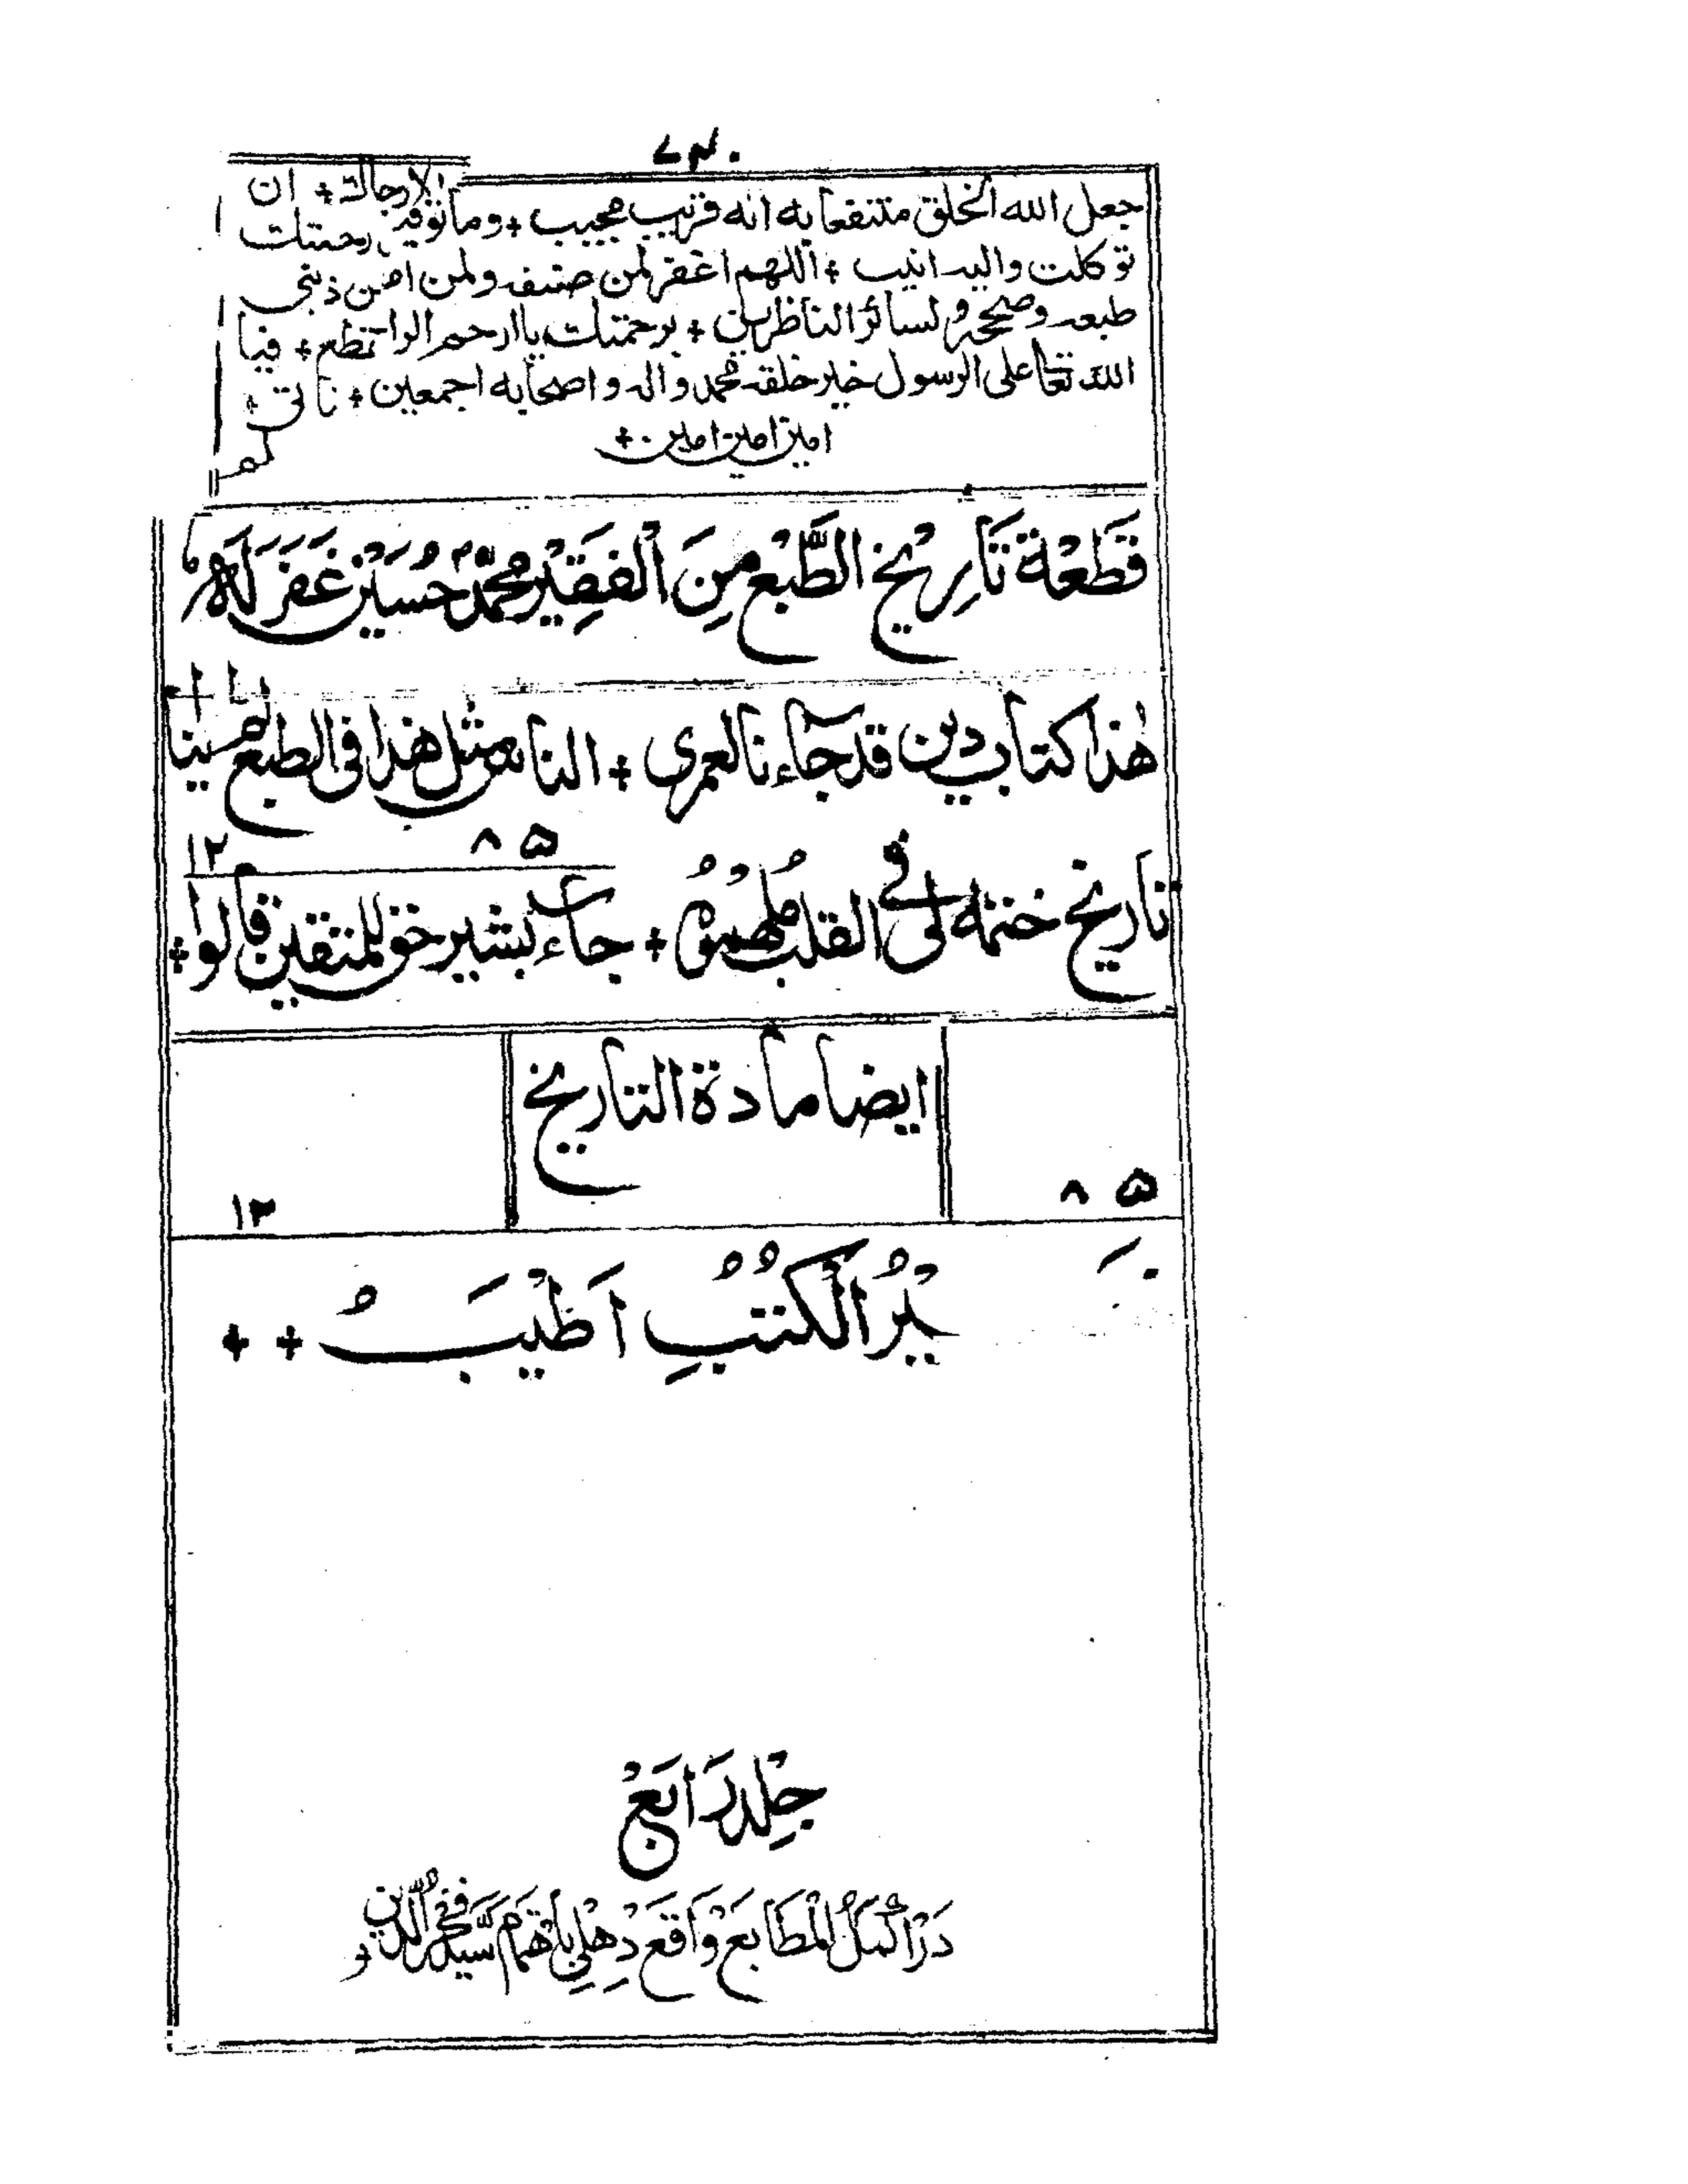 ٧٣٠
جعل الله الخلق متنفعا به انه قريب مجيب + وما توفيق الارجاك + ان
توكلت واليه انيب + اللهم اغفر لمن صنفه ولمن رحمتك
طبعه وصححه ولسائر الناظرين + برحمتك يا ارحم الرا من ذنبى
الله تعا على الرسول خير خلقه محمد واله واصحابه اجمعين + تقطع + فيا
امين امين امين +
قَطْعَة تَأرِيْخ الطَّبْع مِنَ الْفَقِيْر مُحَمَّد حُسَيْن غَفَرَ لَهُ
هٰذا كتاب دين قد جاء نا لعمرى + الناس مثل هذا فى الطبع
١٢ ٨٥
تاريخ ختمه لى فى القلب ملهم + جاء بشير حق للمتقين قالوا +
ايضا مادة التاريخ
١٢ ٨٥
الْكُتُبِ اَطْيَبُ + +
جِلْد رَابَعْ
دَرْ اَكْمَلُ الْمَطَابَعْ وَاقَعْ دِهْلِى بَاهْتَمَام سَيَّد فَخْرُ الدِّين +